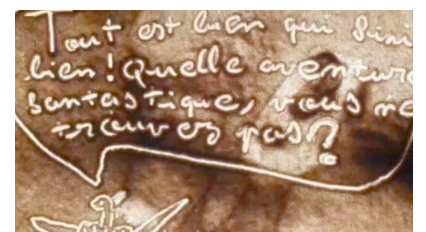 Tout est bien qui fini
bien! Quelle aventure
fantastique, vous ne
trouvez pas?